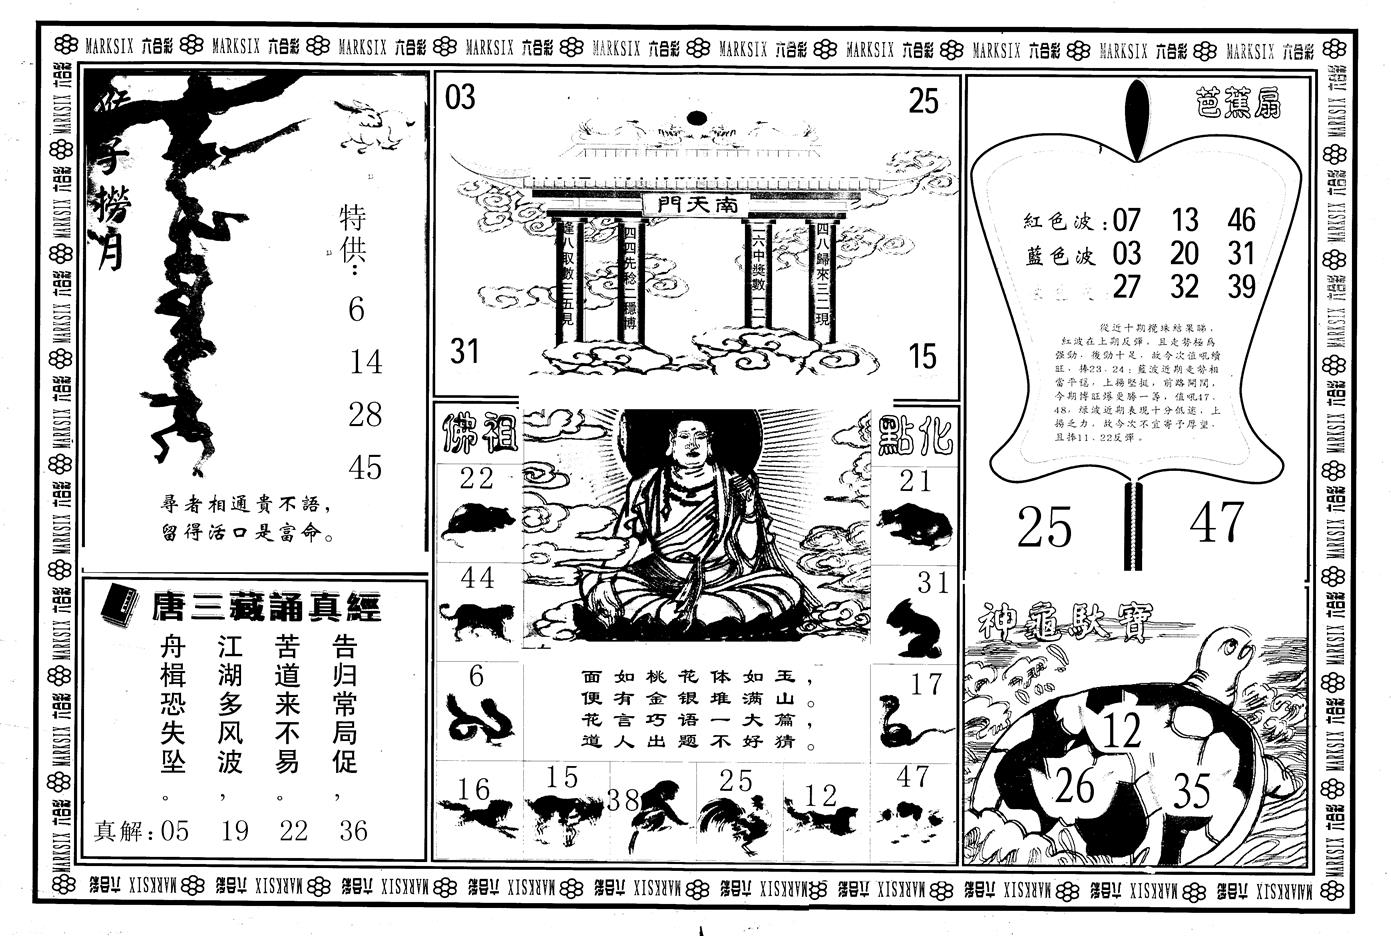 MARKSIX 六合彩 MARKSIX 六合彩 MARKSIX 六合彩 MARKSIX 六合彩 MARKSIX 六合彩 MARKSIX 六合彩 MARKSIX 六合彩 MARKSIX 六合彩 MARKSIX 六合彩 MARKSIX 六合彩
猴子撈月
特供：
6
14
28
45
尋者相通貴不語，
留得活口是富命。
03
25
南天門
逢八取數三五見
四四先稔二穩博
一六中獎數一二
四八歸來三二現
31
15
芭蕉扇
紅色波：07 13 46
藍色波 03 20 31
27 32 39
從近十期攪珠結果睇，
紅波在上期反彈，且走勢極為
強勁，後勁十足，故今次值吼續
旺，捧23、24；藍波近期走勢相
當平穩，上揚堅挺，前路開闊，
今期博旺爆更勝一等，值吼47、
48，綠波近期表現十分低迷，上
揚乏力，故今次不宜寄予厚望，
且捧11、22反彈。
25
47
佛祖
點化
22
21
44
31
6
17
面如桃花体如玉，
便有金银堆满山。
花言巧语一大篇，
道人出题不好猜。
16
15
38
25
12
47
唐三藏誦真經
告归常局促，
苦道来不易。
江湖多风波，
舟楫恐失坠。
真解：05 19 22 36
神龜馱寶
12
26
35